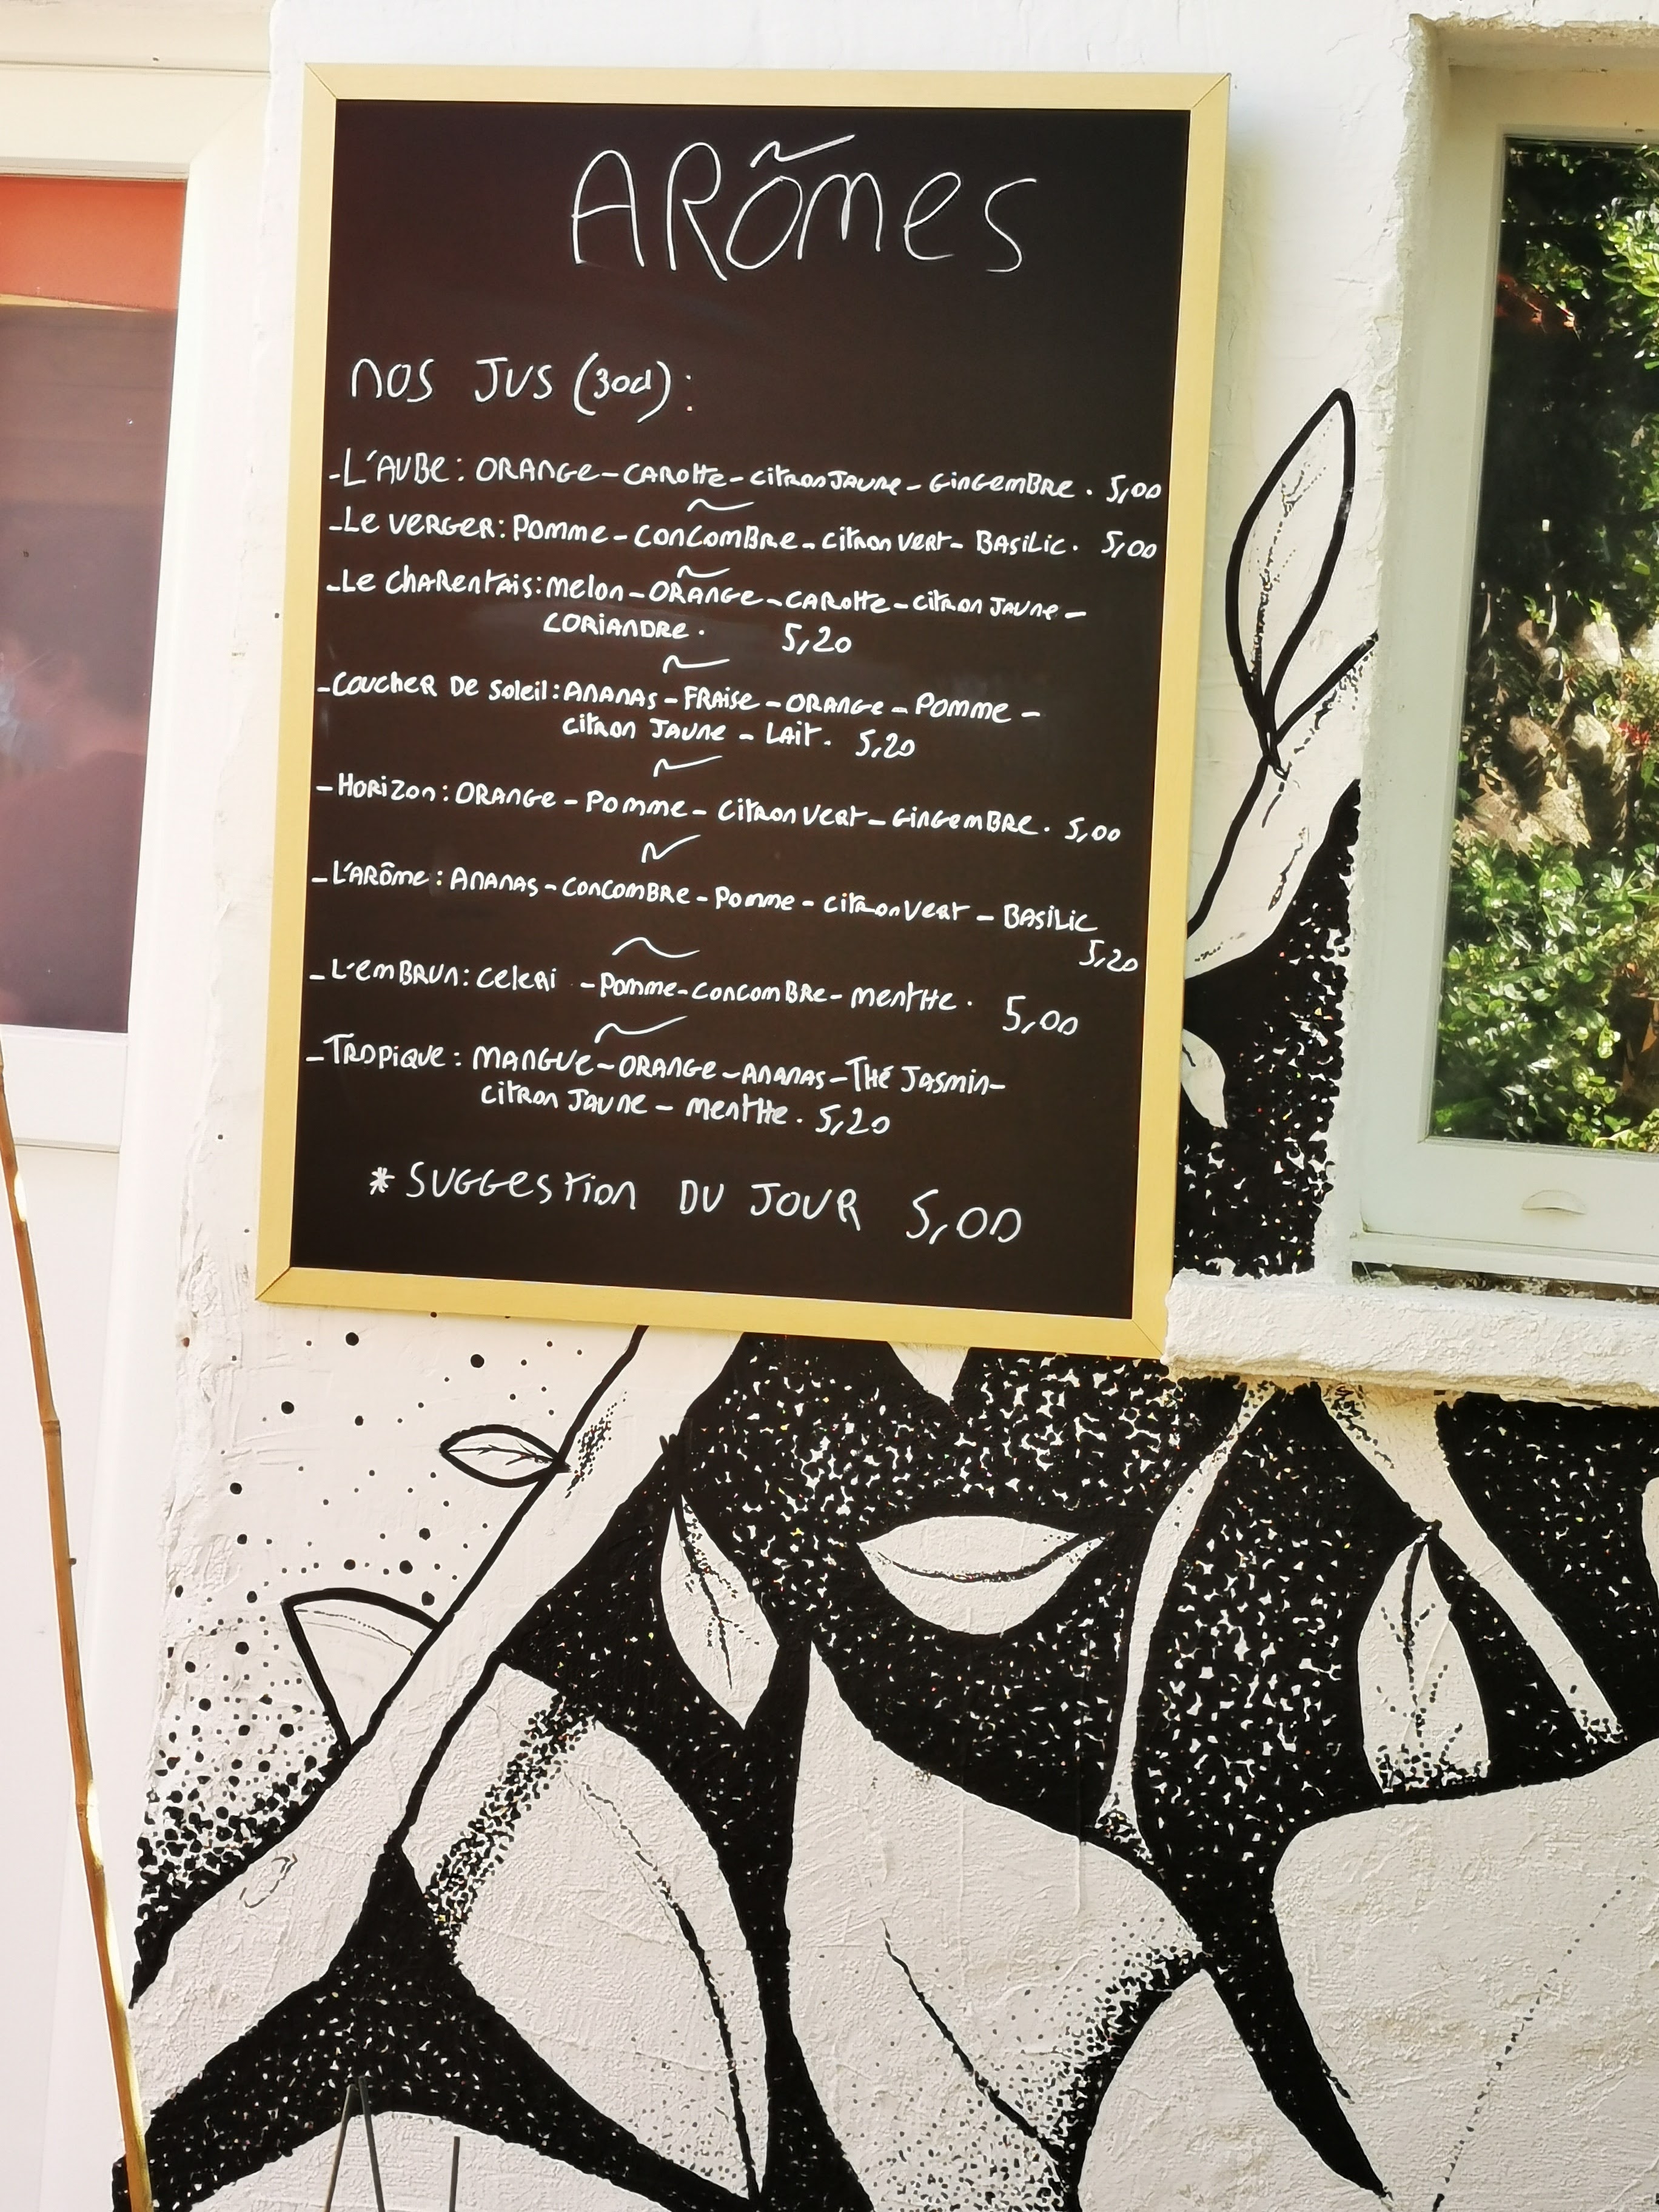 ARômes
nos JUS (30cl) :
-L'AUBe : ORANGe - CAROtte - citron JAUne - GinGemBRe . 5,00
-Le VERGER : Pomme - ConComBRe - citron VeRt - BASiLiC . 5,00
-Le CHARentais : melon - ORANGe - CAROtte - citron JAUne -
CORiANDRe . 5,20
-CoucHeR De Soleil : ANANAS - FRAise - ORANGe - Pomme -
citron JAUne - LAit . 5,20
-HoRiZon : ORANGe - Pomme - Citron VeRt - GinGemBRe . 5,00
-L'ARôme : ANANAS - ConComBRe - Pomme - citron VeRt - BASiLiC
5,20
-L'emBRUn : CeleRi - Pomme - ConComBRe - mentHe . 5,00
-TROPiQUe : MANGUe - ORANGe - ANANAS - THé JASmin -
citron JAUne - mentHe . 5,20
* SUGGestion DU JOUR 5,00